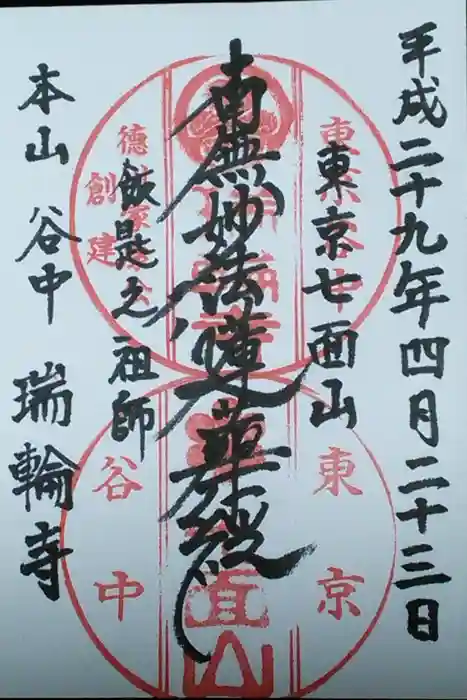 平成二十九年四月二十三日
東京七面山
南無妙法蓮華経
飯匙之祖師
本山 谷中 瑞輪寺
東京谷中
德川家
創建
東京
谷中